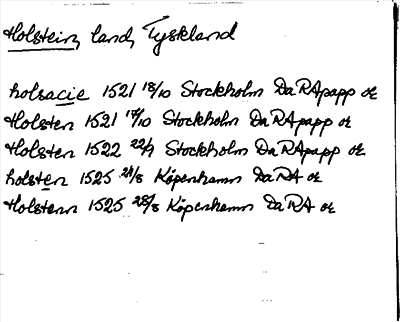 Holstein, land, Tyskland
holsacie 1521 18/10 Stockholm DaRApapp or
Holsten 1521 17/10 Stockholm DaRApapp or
Holsten 1522 22/7 Stockholm DaRApapp or
holsten 1525 24/8 Köpenhamn DaRA or
Holstenn 1525 28/8 Köpenhamn DaRA or